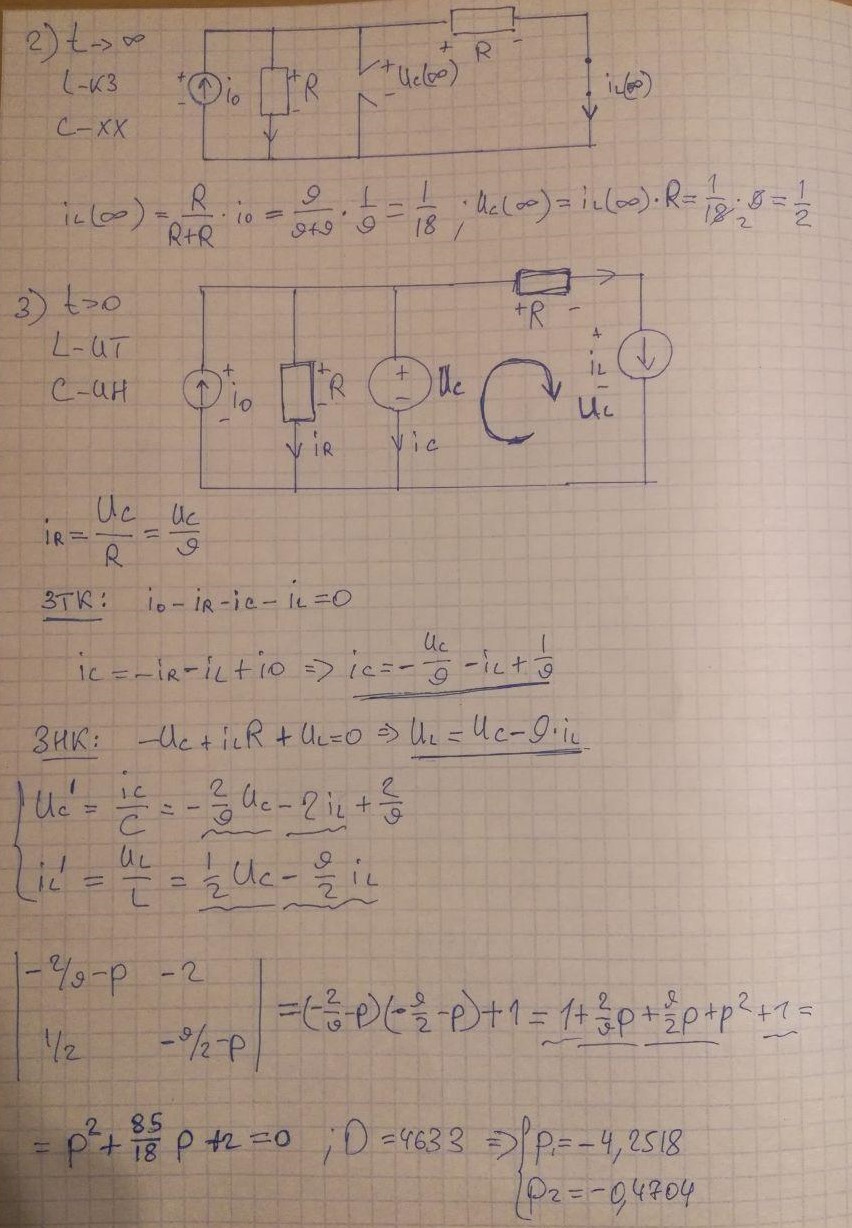 2) t→∞
L-КЗ
C-ХХ
+ - i0 + - R + - Uc(∞) + R - iL(∞)
iL(∞) = R/(R+R) · i0 = 9/(9+9) · 1/9 = 1/18 ; Uc(∞) = iL(∞)·R = 1/18 · 9 = 1/2
2
3) t>0
L-ИТ
C-ИН
+ - i0 + - R iR + - Uc iC +R - + iL - UL
iR = Uc/R = Uc/9
ЗТК: i0 - iR - iC - iL = 0
iC = -iR - iL + i0 => iC = -Uc/9 - iL + 1/9
ЗНК: -Uc + iLR + UL = 0 => UL = Uc - 9·iL
Uc' = iC/C = -2/9 Uc - 2iL + 2/9
iL' = UL/L = 1/2 Uc - 9/2 iL
|-2/9-p -2|
|1/2 -9/2-p| = (-2/9-p)(-9/2-p)+1 = 1+2/9p+9/2p+p²+1=
= p²+85/18 p+2=0 ; D=4633 => p1=-4,2518
p2=-0,4704